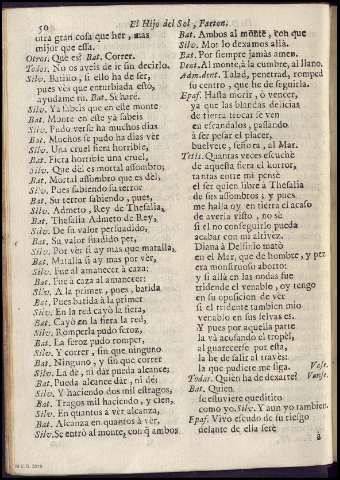 50
El Hijo del Sol, Faeton.
otra gran cosa que her, mas
mijor que essa.
Otros. Què es? Bat. Correr.
Todos. No os aveis de ir sin decirlo.
Silv. Batillo, si ello ha de ser,
pues vès que enturbiada esto,
ayudame tu. Bat. Si harè.
Silv. Ya sabeis que en este monte
Bat. Monte en este yà sabeis
Silv. Pudo verse ha muchos dias
Bat. Muchos se pudo ha dias vèr
Silv. Una cruel fiera horrible,
Bat. Fiera horrible una cruel,
Silv. Que dèl es mortal assombro;
Bat. Mortal assombro que es dèl;
Silv. Pues sabiendo su terror
Bat. Su terror sabiendo, pues,
Silv. Admeto, Rey de Thesalia,
Bat. Thesalia Admeto de Rey,
Silv. De su valor persuadido,
Bat. Su valor suadido per,
Silv. Por vèr si ay mas que matalla,
Bat. Matalla si ay mas por vèr,
Silv. Fue al amanecer à caza:
Bat. Fue à caza al amanecer:
Silv. A la primer, pues, batida
Bat. Pues batida à la primer
Silv. En la red cayò la fiera,
Bat. Cayò en la fiera la red,
Silv. Romperla pudo feroz,
Bat. La feroz pudo romper,
Silv. Y correr, sin que ninguno
Bat. Ninguno, y sin que correr
Silv. La dè, ni dàr pueda alcance;
Bat. Pueda alcance dar, ni dè:
Silv. Y haciendo dos mil estragos,
Bat. Tragos mil haciendo, y cien,
Silv. En quantos à vèr alcanza,
Bat. Alcanza en quantos à vèr,
Silv. Se entrò al monte, con q̃ ambos
Bat. Ambos al monte, con que
Silv. Mos lo dexamos allà.
Bat. Por siempre jamàs amen.
Dent. Al monte, à la cumbre, al llano.
Adm. dent. Talad, penetrad, romped
su centro, que he de seguirla.
Epaf. Hasta morir, ò vencer,
ya que las blandas delicias
de tierra trocar se ven
en escandalos, passando
à ser pesar el placer,
buelvete, señora, al Mar.
Tetis. Quantas veces escuchè
de aquesta fiera el horror,
tantas entre mi pensè
el ser quien libre à Thesalia
de sus assombros; y pues
me halla oy en tierra el acaso
de averla visto, no sè
si el no conseguirlo pueda
acabar con mi altivèz.
Diana à Delfinio matò
en el Mar, que de hombre, y pez
era monstruoso aborto:
y si allà en las ondas fue
tridende el venablo, oy tengo
en su oposicion de ver
si el tridente tambien mio
venablo en sus selvas es.
Y pues por aquella parte
la và acosando el tropèl,
al guarecerse por esta,
la he de salir al travès:
la que pudiere me siga. Vase.
Todas. Quien ha de dexarte? Vanse.
Bat. Quien.
se estuviere quedito
como yo. Silv. Y aun yo tambien.
Epaf. Vivo escudo de su riesgo
delante de ella serè
à